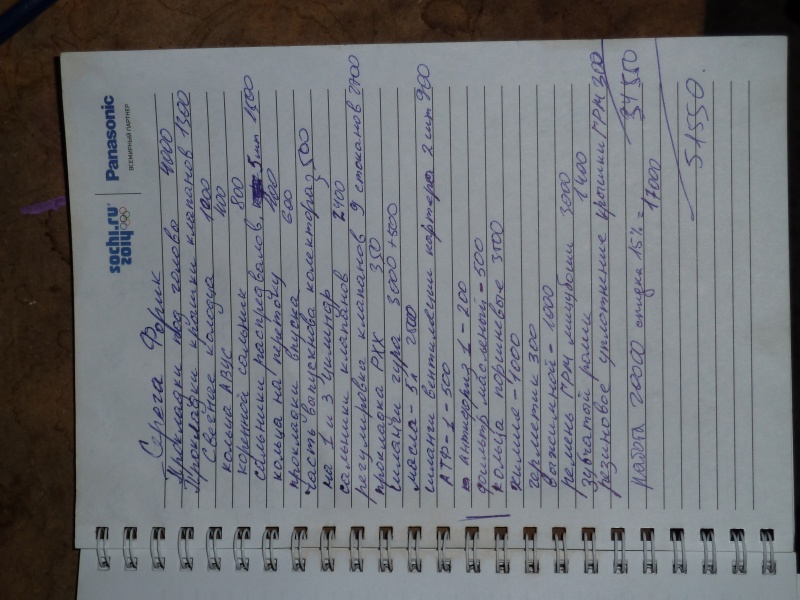 sochi.ru
2014
Panasonic
ВСЕМИРНЫЙ ПАРТНЕР
Серега Форик
Прокладки под головы 4000
Прокладки крышки клапанов 1300
Свечные колодца 1000
кольца АВУС 400
коренной сальник 800
сальники распредвалов, 5 шт 1500
кольца на 400
прокладки впуска 600
часть выпускнова колектора 500
на 1 и 3 цилиндр
сальники клапанов 2400
регулировка клапанов 9 стоканов 2700
прокладка РХХ 350
шланги гура 3000 + 500
масла - 5л 2500
шланги вентиляции картера 2 шт 900
АТР-1-500
Антифриз 1-200
фильтр масленый - 500
кольца поршневые 3500
химия - 1000
герметик 300
выжимной - 1000
ремень ГРМ мицубоши 3000
зубчатой ролик 1400
резиновое уплотнение крышки ГРМ 300
34550
работа 20000 скидка 15% = 17000
51550.